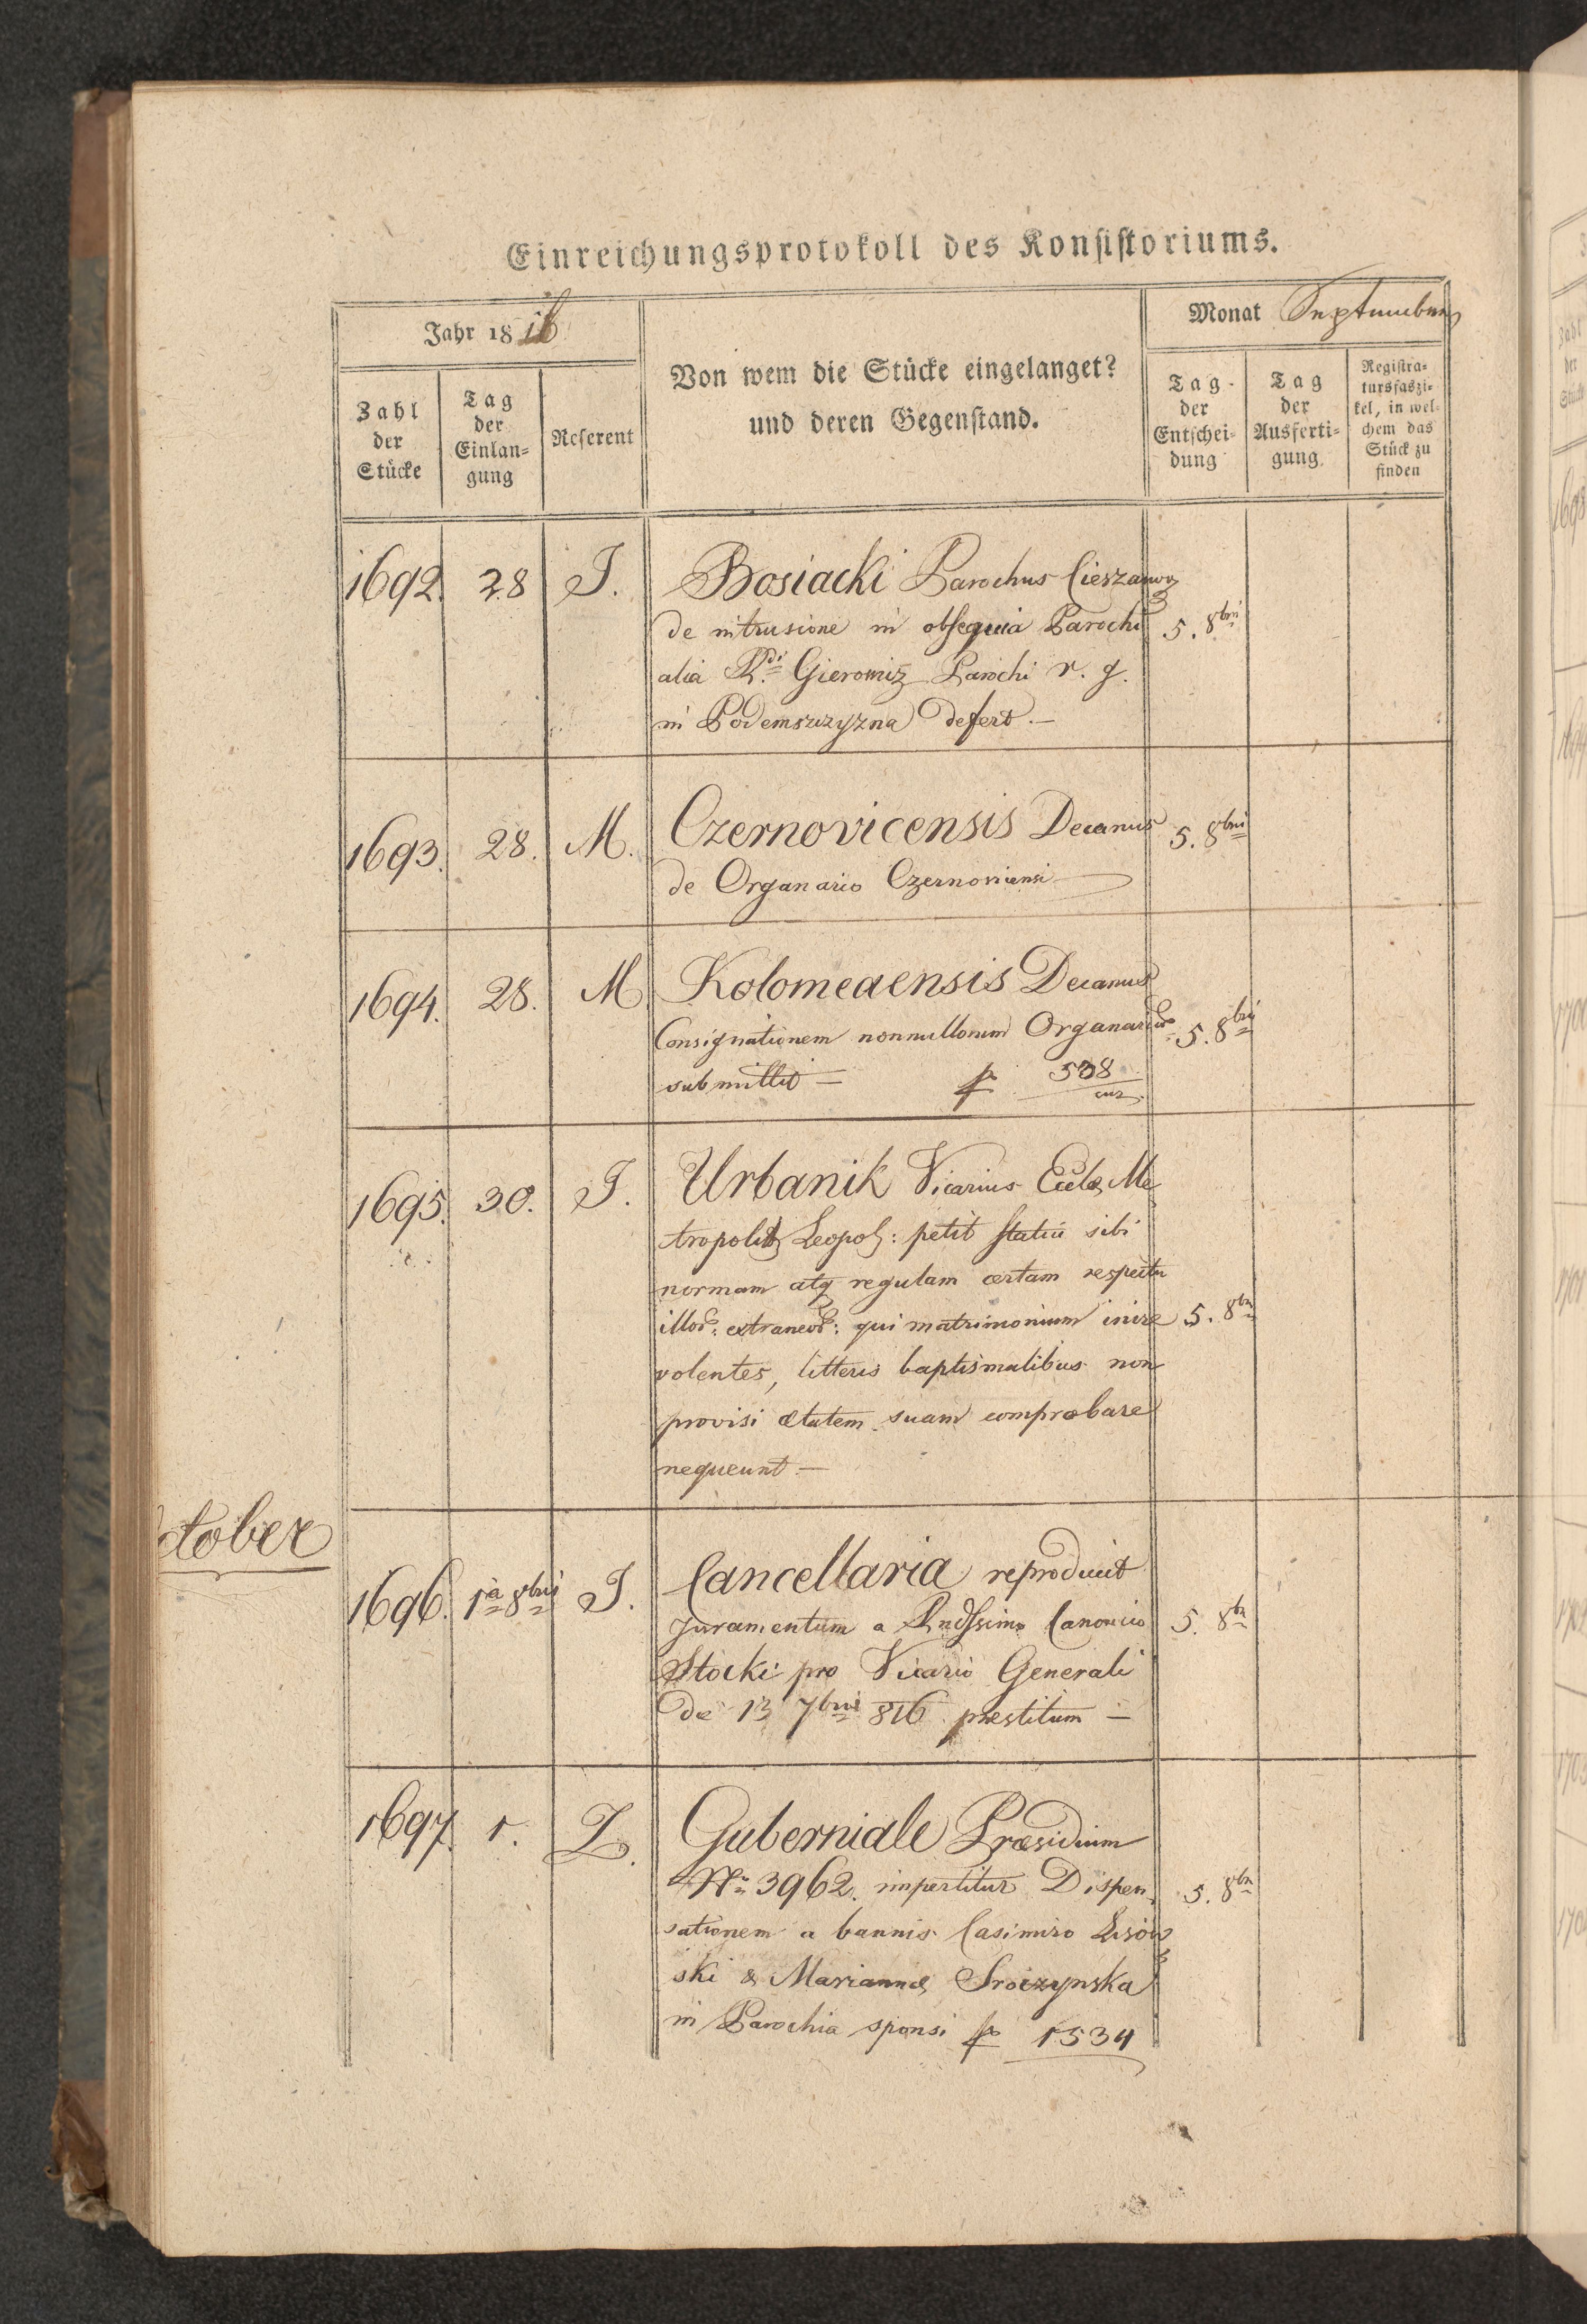 Einreichungsprotokoll des Konsistoriums.
Jahr 1816
Von wem die Stücke eingelanget?
und deren Gegenstand.
Monat September
Zahl
der
Stücke
Tag
der
Einlan-
gung
Referent
Tag
der
Entschei-
dung
Tag
der
Ausferti-
gung
Registra-
tursfaszi-
kel, in wel-
chem das
Stück zu
finden
1692. 28 J. Bosiacki Parochus Cieszanov
de intrusione in obsequia Parochi 5. 8bri
alia Rdi Gierowicz Parochi r. g.
in Podemszczyzna defert.—
1693. 28. M. Czernovicensis Decanus 5. 8bri
de Organario Czernoviensi
1694. 28. M Kolomeaensis Decanus
Consignationem nonnullorum Organarior 5. 8bri
submittit — p 538
1695. 30. J. Urbanik Vicarius Eccle Me
tropolit Leopol: petit statui sibi
normam atq regulam certam respectu
illor: extraneor: qui matrimonium inire 5. 8br
volentes, litteris baptismalibus non
provisi ætatem suam comprobare
nequeunt —
ctober
1696. 1a 8bris J. Cancellaria reproducit
Juramentum a Rndssimo Canonico 5. 8br
Stocki pro Vicario Generali
de 13 7bris 816 præstitum —
1697. 1. Z. Guberniale Præsidium
Nr 3962. impertitur Dispen 5. 8br
sationem a bannis Casimiro Lisow
ski & Marianne Sroczynska
in Parochia sponsi p 1534